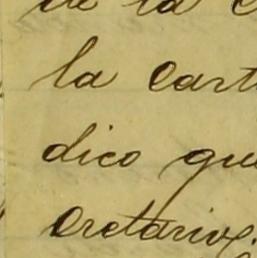 de la c
la cart
dico qu
cretario